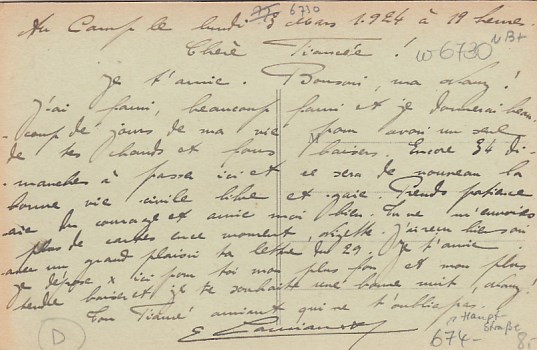 Au Camp le lundi 3 Mars 1.924 à 19 heure.
6710
Chère Fiancée !
w 6730
NB+
Je t'aime. Bonsoir, ma !
J'ai faim, beaucoup faim et je donnerai beau-
coup de jours de ma vie pour avoir un seul
de tes chauds et fous baisers. Encore 34 di-
manches à passer ici et ce sera de nouveau la
bonne vie civile libre et gaie. Prends patience
aie du courage et aime moi bien. Tu ne m'envoies
plus de cartes en ce moment, j'ai reçu hier soir
avec un grand plaisir ta lettre du 29. Je t'aime.
Je dépose x ici pour toi mon plus fou et mon plus
tendre baiser et je te souhaite une bonne nuit,
Ton Fiancé aimant qui ne t'oublie pas.
E
Haupt
Straße
674-
8.-
D